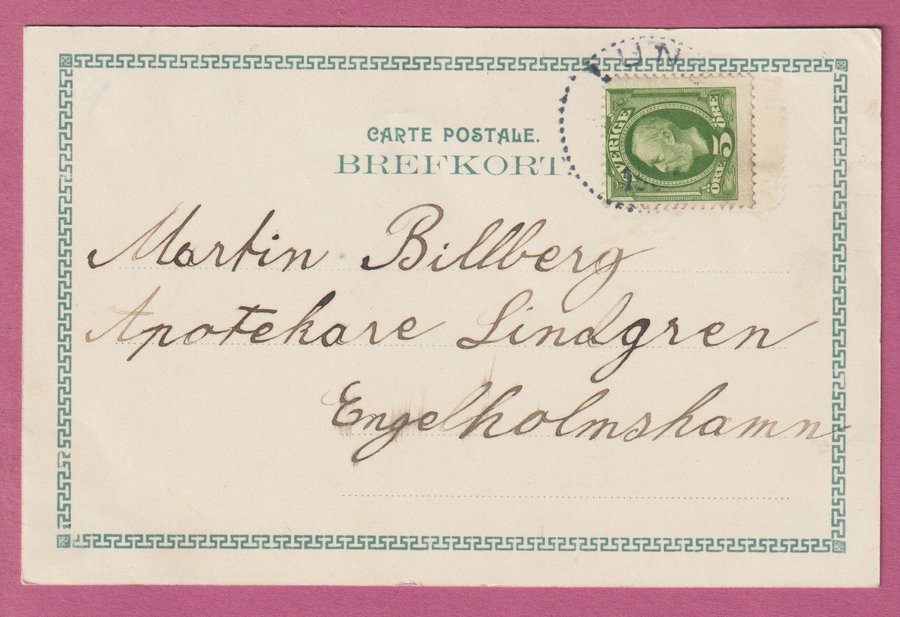 CARTE POSTALE.
BREFKORT
SVERIGE
5
ÖRE
Martin Billberg
Apotekare Lindgren
Engelholmshamn